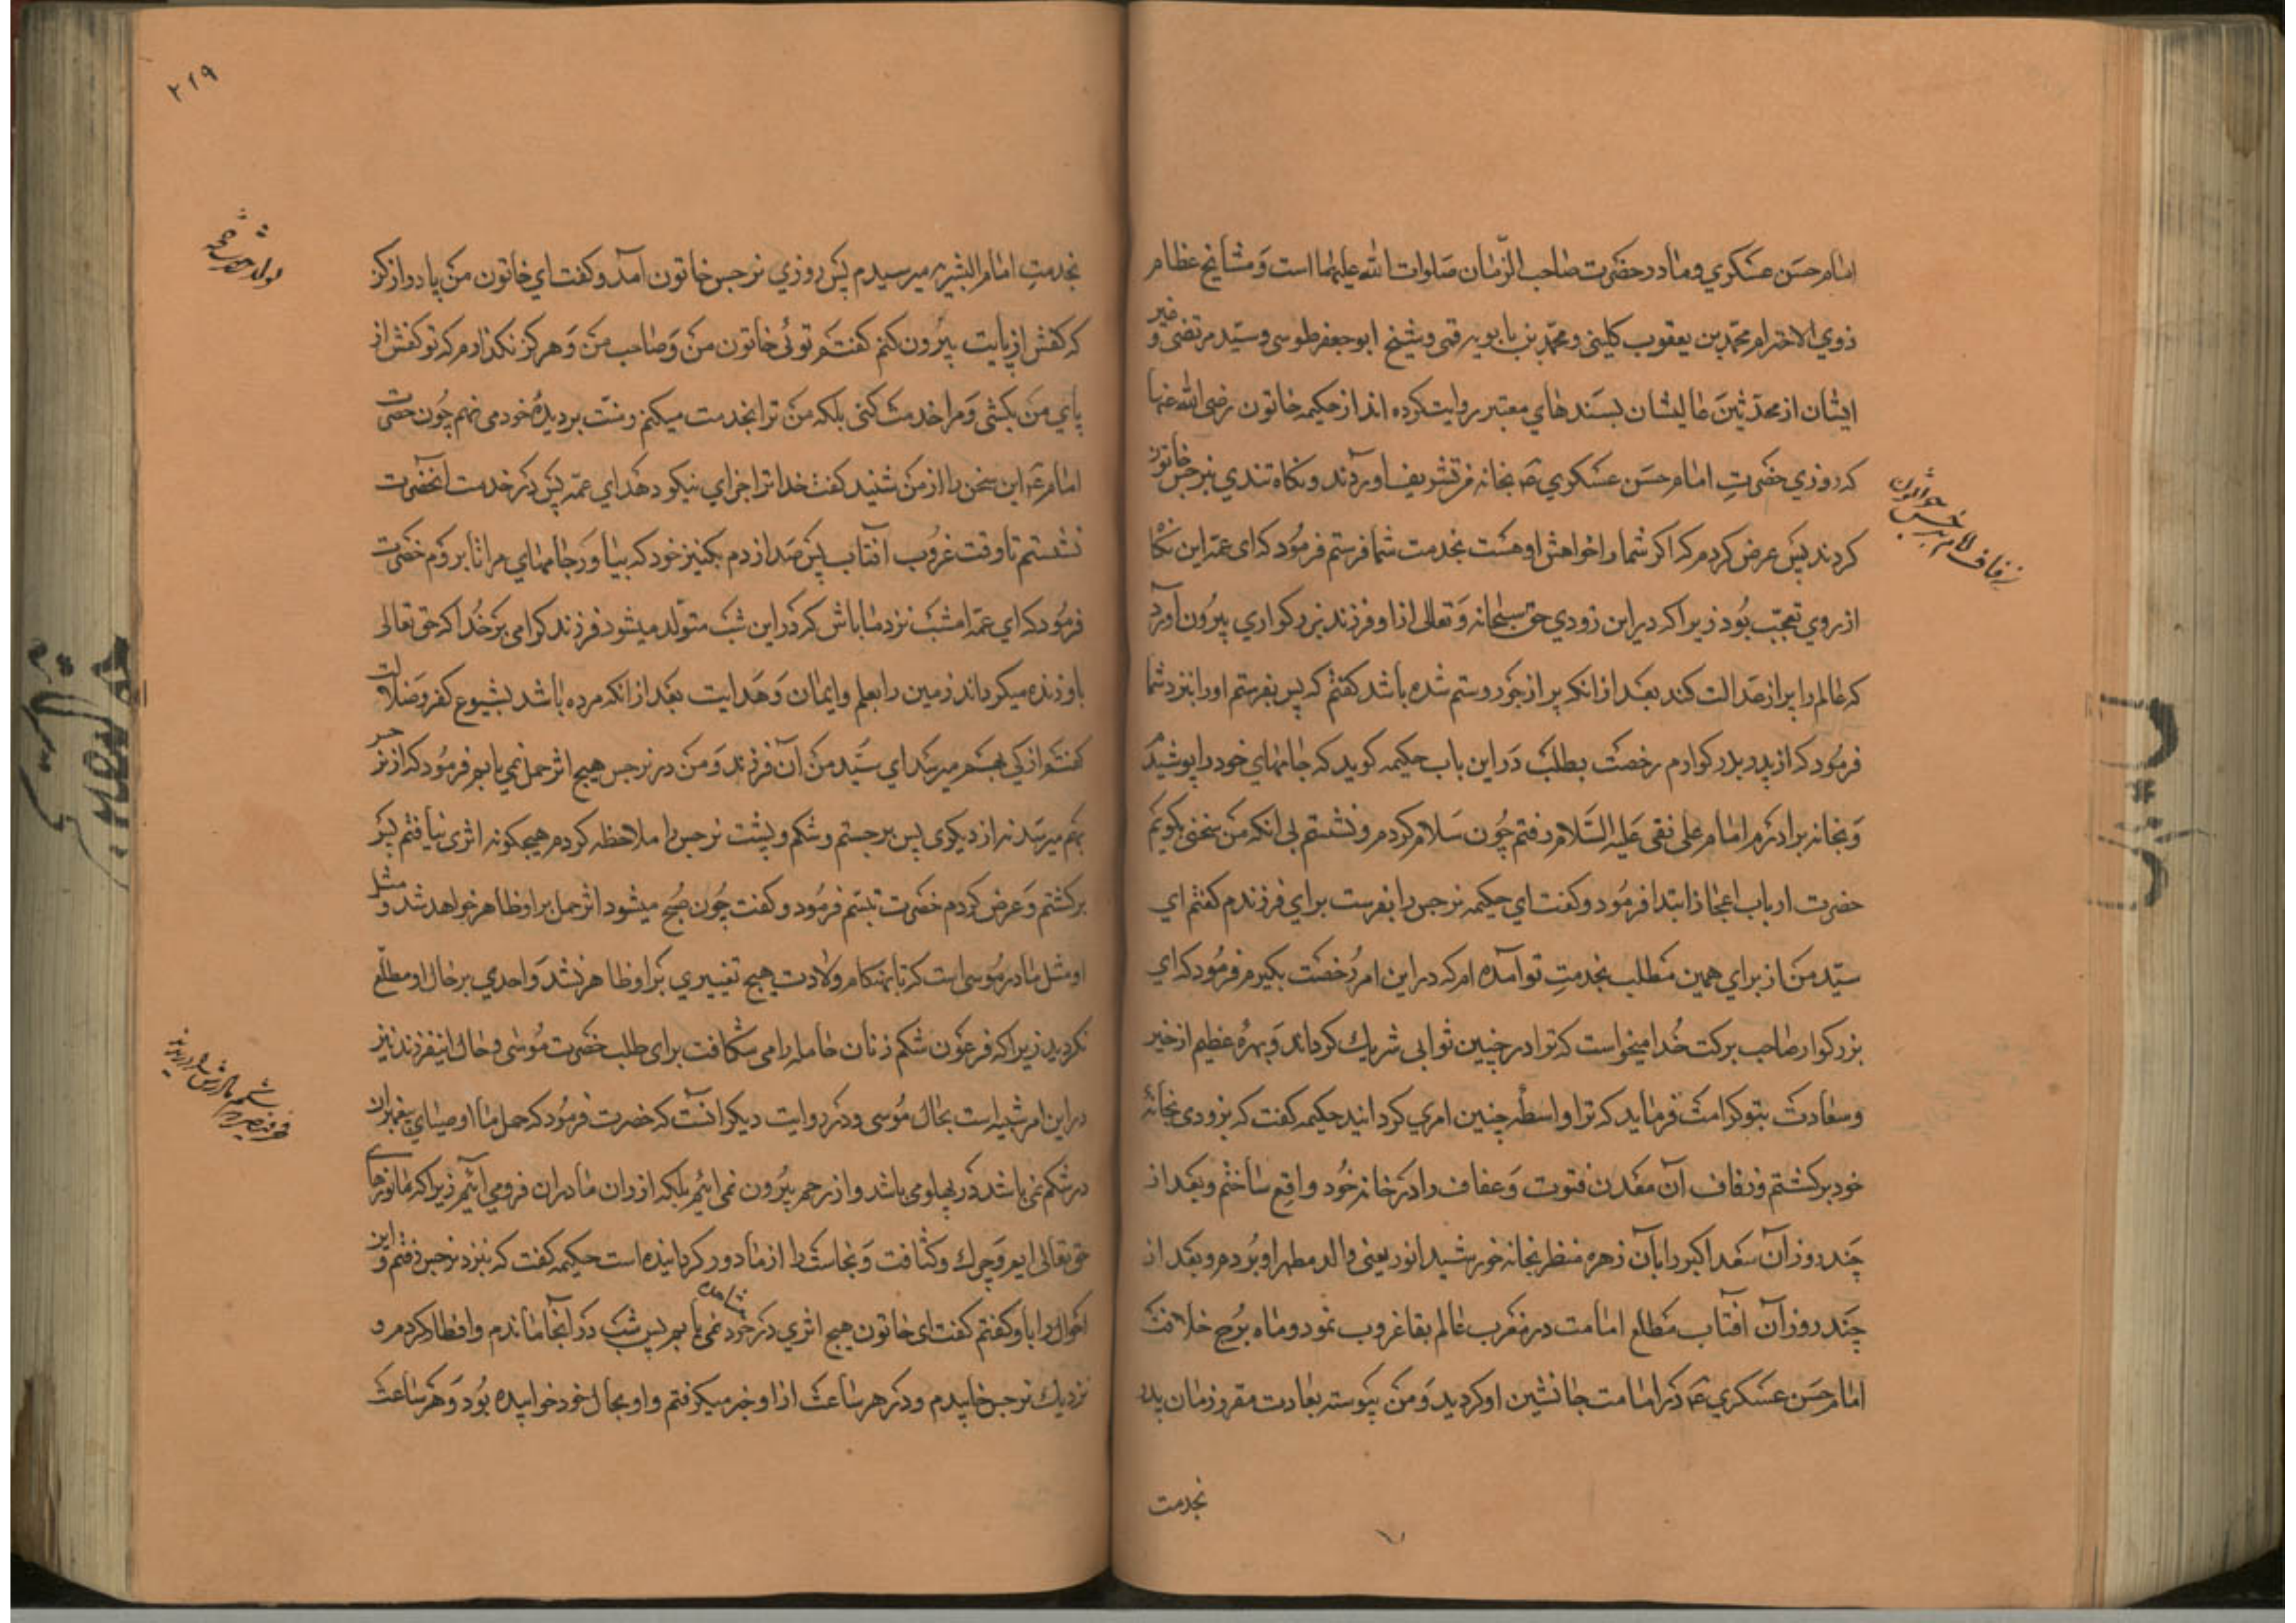 امام حسن عسکري و مادر حضرت صاحب الزّمان صلوات الله علیهما است و مشایخ عظام
ذوي الاحترام محمّد بن یعقوب کلینی و محمّد بن بابویه قمی و شیخ ابو جعفر طوسی و سیّد مرتضی و غیر
ایشان از محدّثین عالیشان بسندهاي معتبر روایت کرده اند از حکیمه خاتون رضی الله عنها
که روزي حضرت امام حسن عسکري ع بخانه من تشریف آوردند و نکاه تندي بنرجس خاتون
کردند پس عرض کردم که اکر شما را خواهش او هست بخدمت شما فرستم فرمود که ای عمّه این نکاه
از روي تعجّب بود زیرا که در این زودي حق سبحانه و تعالی از او فرزند بزرکواري بیرون آورد
که عالم را پر از عدالت کند بعد از آنکه پر از جور و ستم شده باشد کفتم که پس بفرستم او را بنزد شما
فرمود که از پدر بزرکوارم رخصت بطلب در این باب حکیمه کوید که جامهاي خود را پوشیدم
و بخانه برادرم امام علی نقی علیه السّلام رفتم چون سلام کردم و نشستم بی آنکه من سخنی بکویم
حضرت از باب اعجاز ابتدا فرمود و کفت اي حکیمه نرجس را بفرست براي فرزندم کفتم اي
سیّد من از براي همین مطلب بخدمت تو آمده ام که در این امر رخصت بکیرم فرمود که اي
بزرکوار صاحب برکت خدا میخواست که ترا در چنین ثوابی شریك کرداند و بهرۀ عظیم از خیر
و سعادت بتو کرامت فرماید که ترا واسطۀ چنین امري کردانید حکیمه کفت که بزودی بخانۀ
خود برکشتم و زفاف آن معدن فتوت و عفاف را در خانه خود واقع ساختم و بعد از
چند روز آن سعد اکبر را با آن زهره منظر بخانه خورشید انور یعنی والد مطهر او بردم و بعد از
چند روز آن آفتاب مطلع امامت در مغرب عالم بقا غروب نمود و ماه برج خلافت
امام حسن عسکري ع در امامت جانشین او کردید و من پیوسته بعادت مقرر زمان پدر
بخدمت
زفاف
۲۱۹
بخدمت امام البشر میرسیدم پس روزي نرجس خاتون آمد و کفت اي خاتون من پا دراز کن
که کفش از پایت بیرون کنم کفتم توئی خاتون من و صاحب من و هرکز نکذارم که تو کفش از
پاي من بکشی و مرا خدمت کنی بلکه من ترا بخدمت میکنم و منّت بر دیدۀ خود می نهم چون حضرت
امام ع این سخن را از من شنید کفت خدا ترا جزاي نیکو دهد اي عمّه پس در خدمت آنحضرت
نشستم تا وقت غروب آفتاب پس صدا زدم بکنیز خود که بیاور جامهاي مرا تا بروم حضرت
فرمود که اي عمّه امشب نزد ما باش که در این شب متولّد میشود فرزند کرامی بر خدا که حق تعالی
باو زنده میکرداند زمین را بعلم و ایمان و هدایت بعد از آنکه مرده باشد بشیوع کفر و ضلالت
کفتم از کی بهم میرسد اي سیّد من آن فرزند و من در نرجس هیچ اثر حمل نمي یابم فرمود که از نرجس
بهم میرسد نه از دیکري پس برجستم و شکم و پشت نرجس را ملاحظه کردم هیچکونه اثري نیافتم پس
برکشتم و عرض کردم حضرت تبسّم فرمود و کفت چون صبح میشود اثر حمل بر او ظاهر خواهد شد و مثل
او مثل مادر موسی است که تا هنکام ولادت هیچ تغییري بر او ظاهر نشد و احدي بر حال او مطلّع
نکردید زیرا که فرعون شکم زنان حامله را می شکافت براي طلب حضرت موسی و حال اینفرزند نیز
در این امر شبیه است بحال موسی و در روایت دیکر آنست که حضرت فرمود که حمل ما اوصیاي پیغمبران
در شکم نمی باشد در پهلو می باشد و از رحم بیرون نمی آئیم بلکه از ران مادران فرو می آئیم زیرا که ما نورهاي
حق تعالی ایم و چرك و کثافت و نجاست را از ما دور کردانیده است حکیمه کفت که بنزد نرجس رفتم و این
احوال را باو کفتم کفت اي خاتون هیچ اثري در خود مشاهده نمی نمایم پس شب در آنجا ماندم و افطار کردم و
نزدیك نرجس خابیدم و در هر ساعت از او خبر میکرفتم و او بحال خود خوابیده بود و هر ساعت